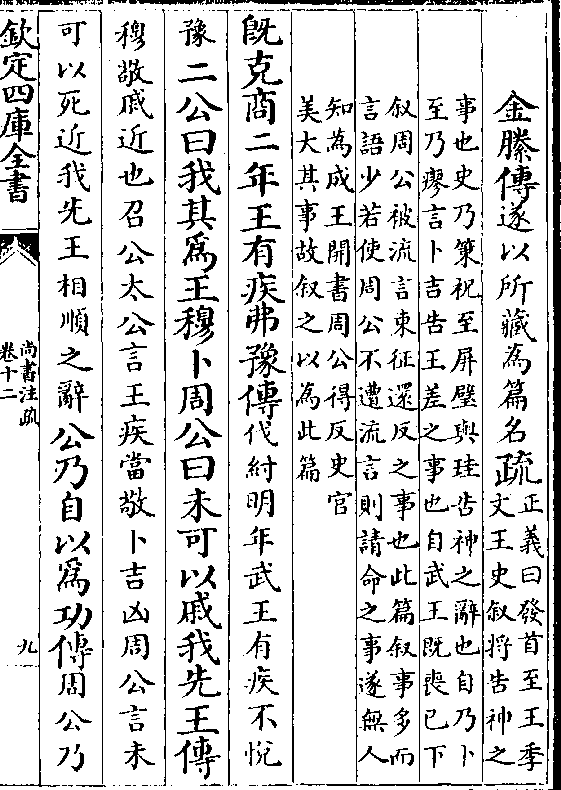 金縢傳遂以所藏為篇名疏正義曰發首至王季
文王史叙將告神之
事也史乃策祝至屏璧與珪告神之辭也自乃卜
至乃瘳言卜吉告王差之事也自武王既喪已下
叙周公被流言東征還反之事也此篇叙事多而
言語少若使周公不遭流言則請命之事遂無人
知為成王開書周公得反史官
美大其事故叙之以為此篇
既克商二年王有疾弗豫傳伐紂明年武王有疾不悅
豫二公曰我其為王穆卜周公曰未可以戚我先王傳
穆敬戚近也召公太公言王疾當敬卜吉凶周公言未
可以死近我先王相順之辭公乃自以為功傳周公乃
欽定四庫全書
尚書注疏
卷十二
九